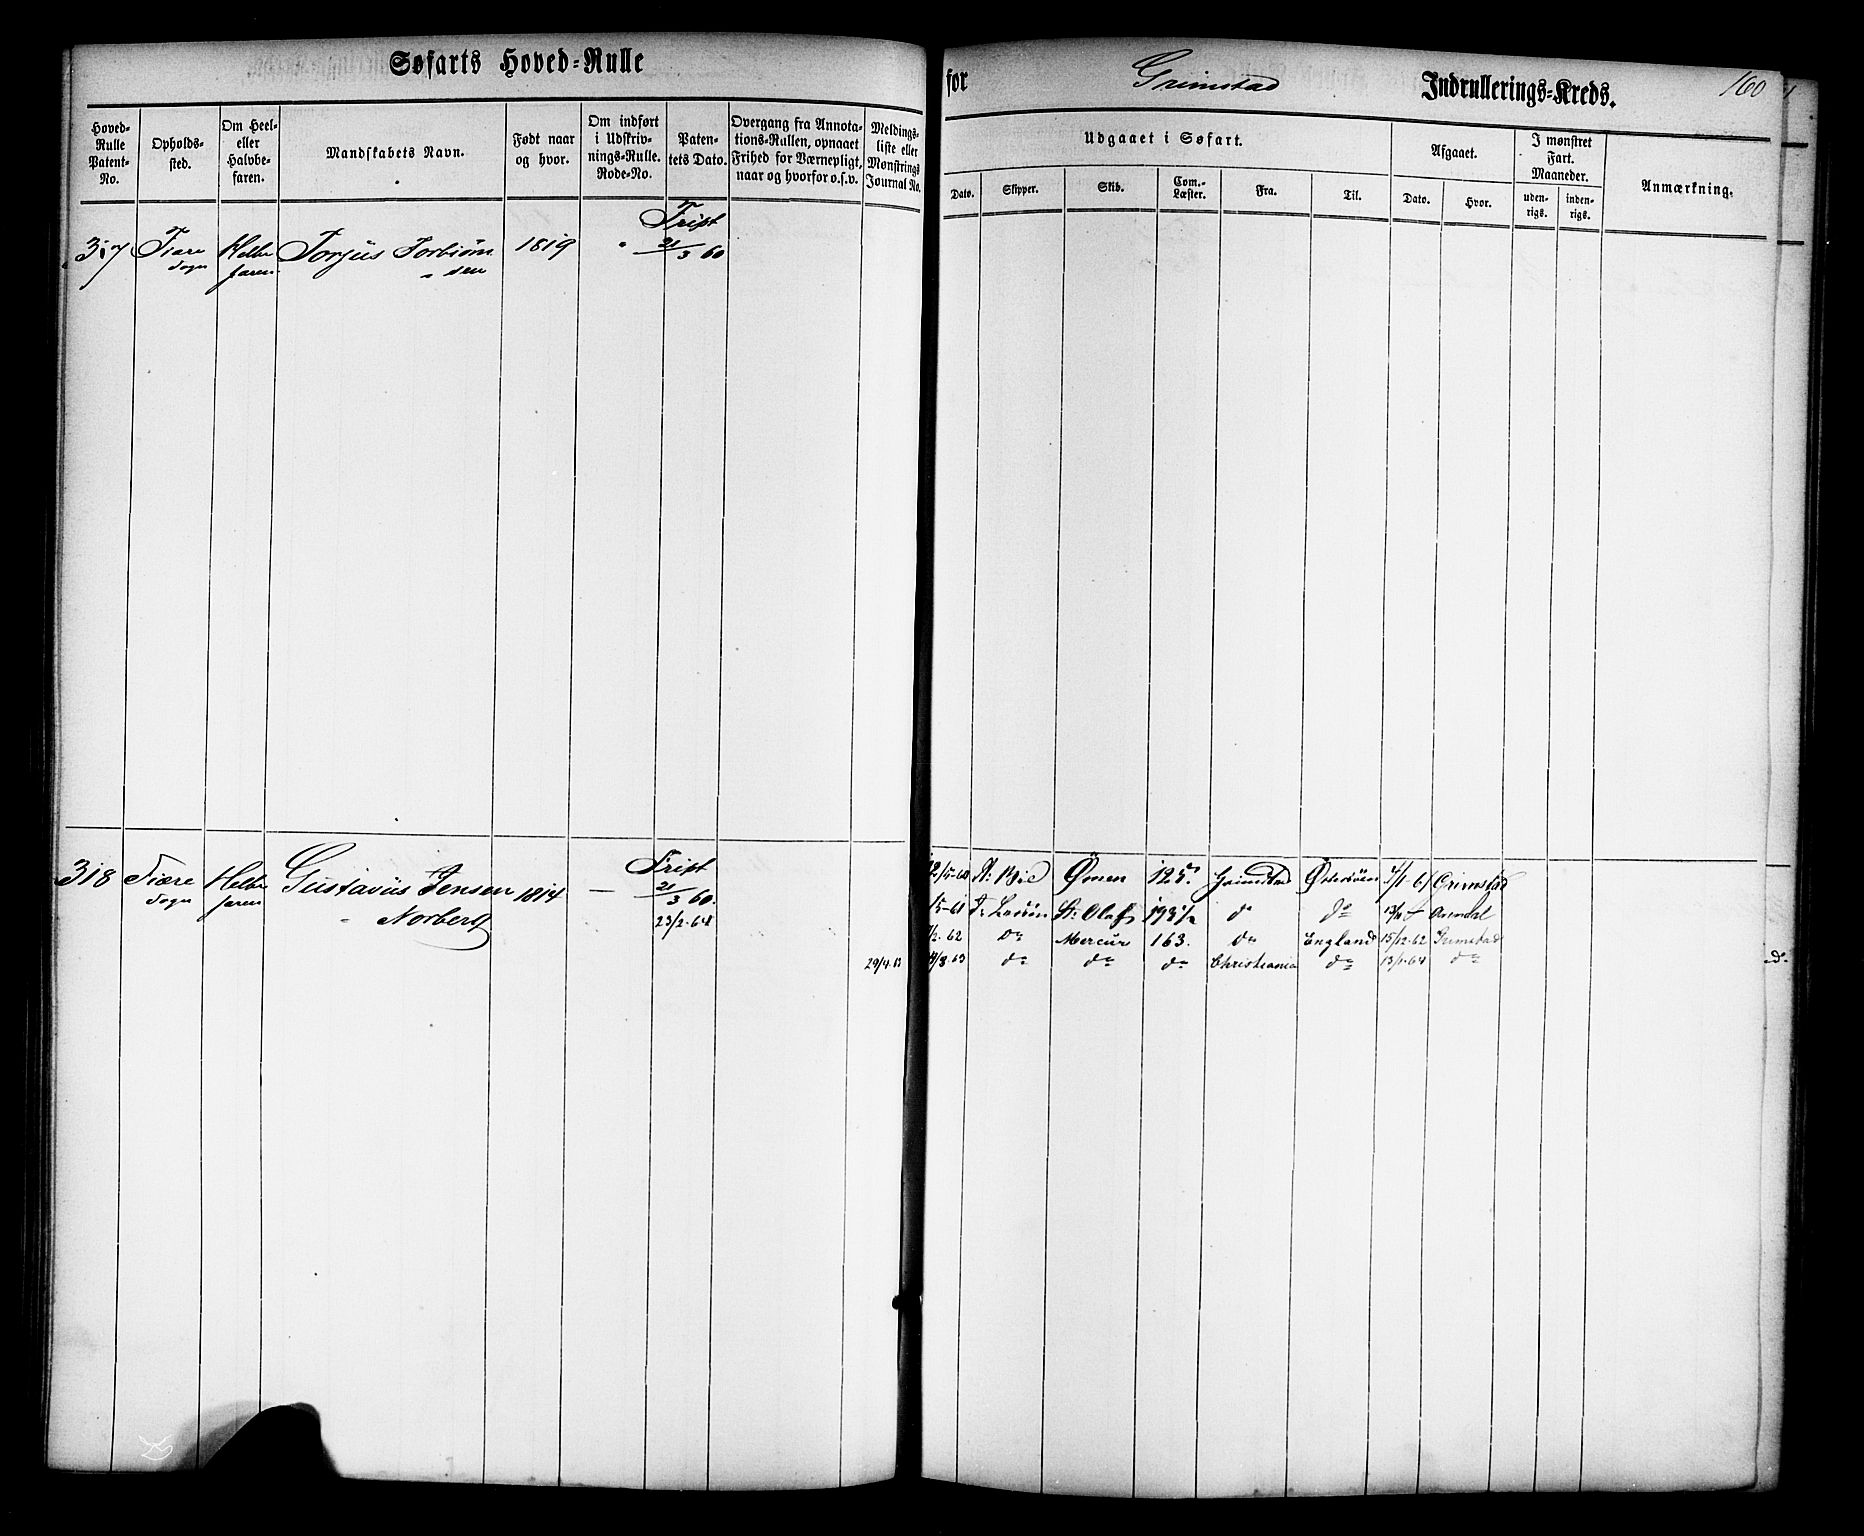 Søfarts Hoved-Rulle
for Grimstad Indrullerings-Kreds. 160
Hoved-Rulle Patent-No.
Opholds-sted.
Om Heel- eller Halvbe-faren.
Mandskabets Navn.
Født naar og hvor.
Om indført i Udskriv-nings-Rulle. Rode-No.
Paten-tets Dato.
Overgang fra Annota-tions-Rullen, opnaaet Frihed for Værnepligt, naar og hvorfor o.s.v.
Meldings-liste eller Mønstrings Journal No.
Udgaaet i Søfart.
Dato. Skipper. Skib. Com.-Læster. Fra. Til.
Afgaaet.
Dato. Hvor.
I mønstret Fart. Maaneder.
uden-rigs. inden-rigs.
Anmærkning.
Fript
317 Fiære Halbe Torjus Torbiørn 1819 " 21/3 60
Sogn faren " sen
Fript
318 Fiære Halbe Gustavus Jensen 1814 — 21/3 60.
Sogn faren " Norberg 23/2.64
29/4.63
12/5-60 Ømen 125. Grimstad Østersøen 4/1-61 Grimstad
/5-61 St: Olaf 193½ do do Arendal
/2.62 do Mercur 163. do England 15/12.62 Grimstad
/8.63 do do do Christiania do 13/1.64 do